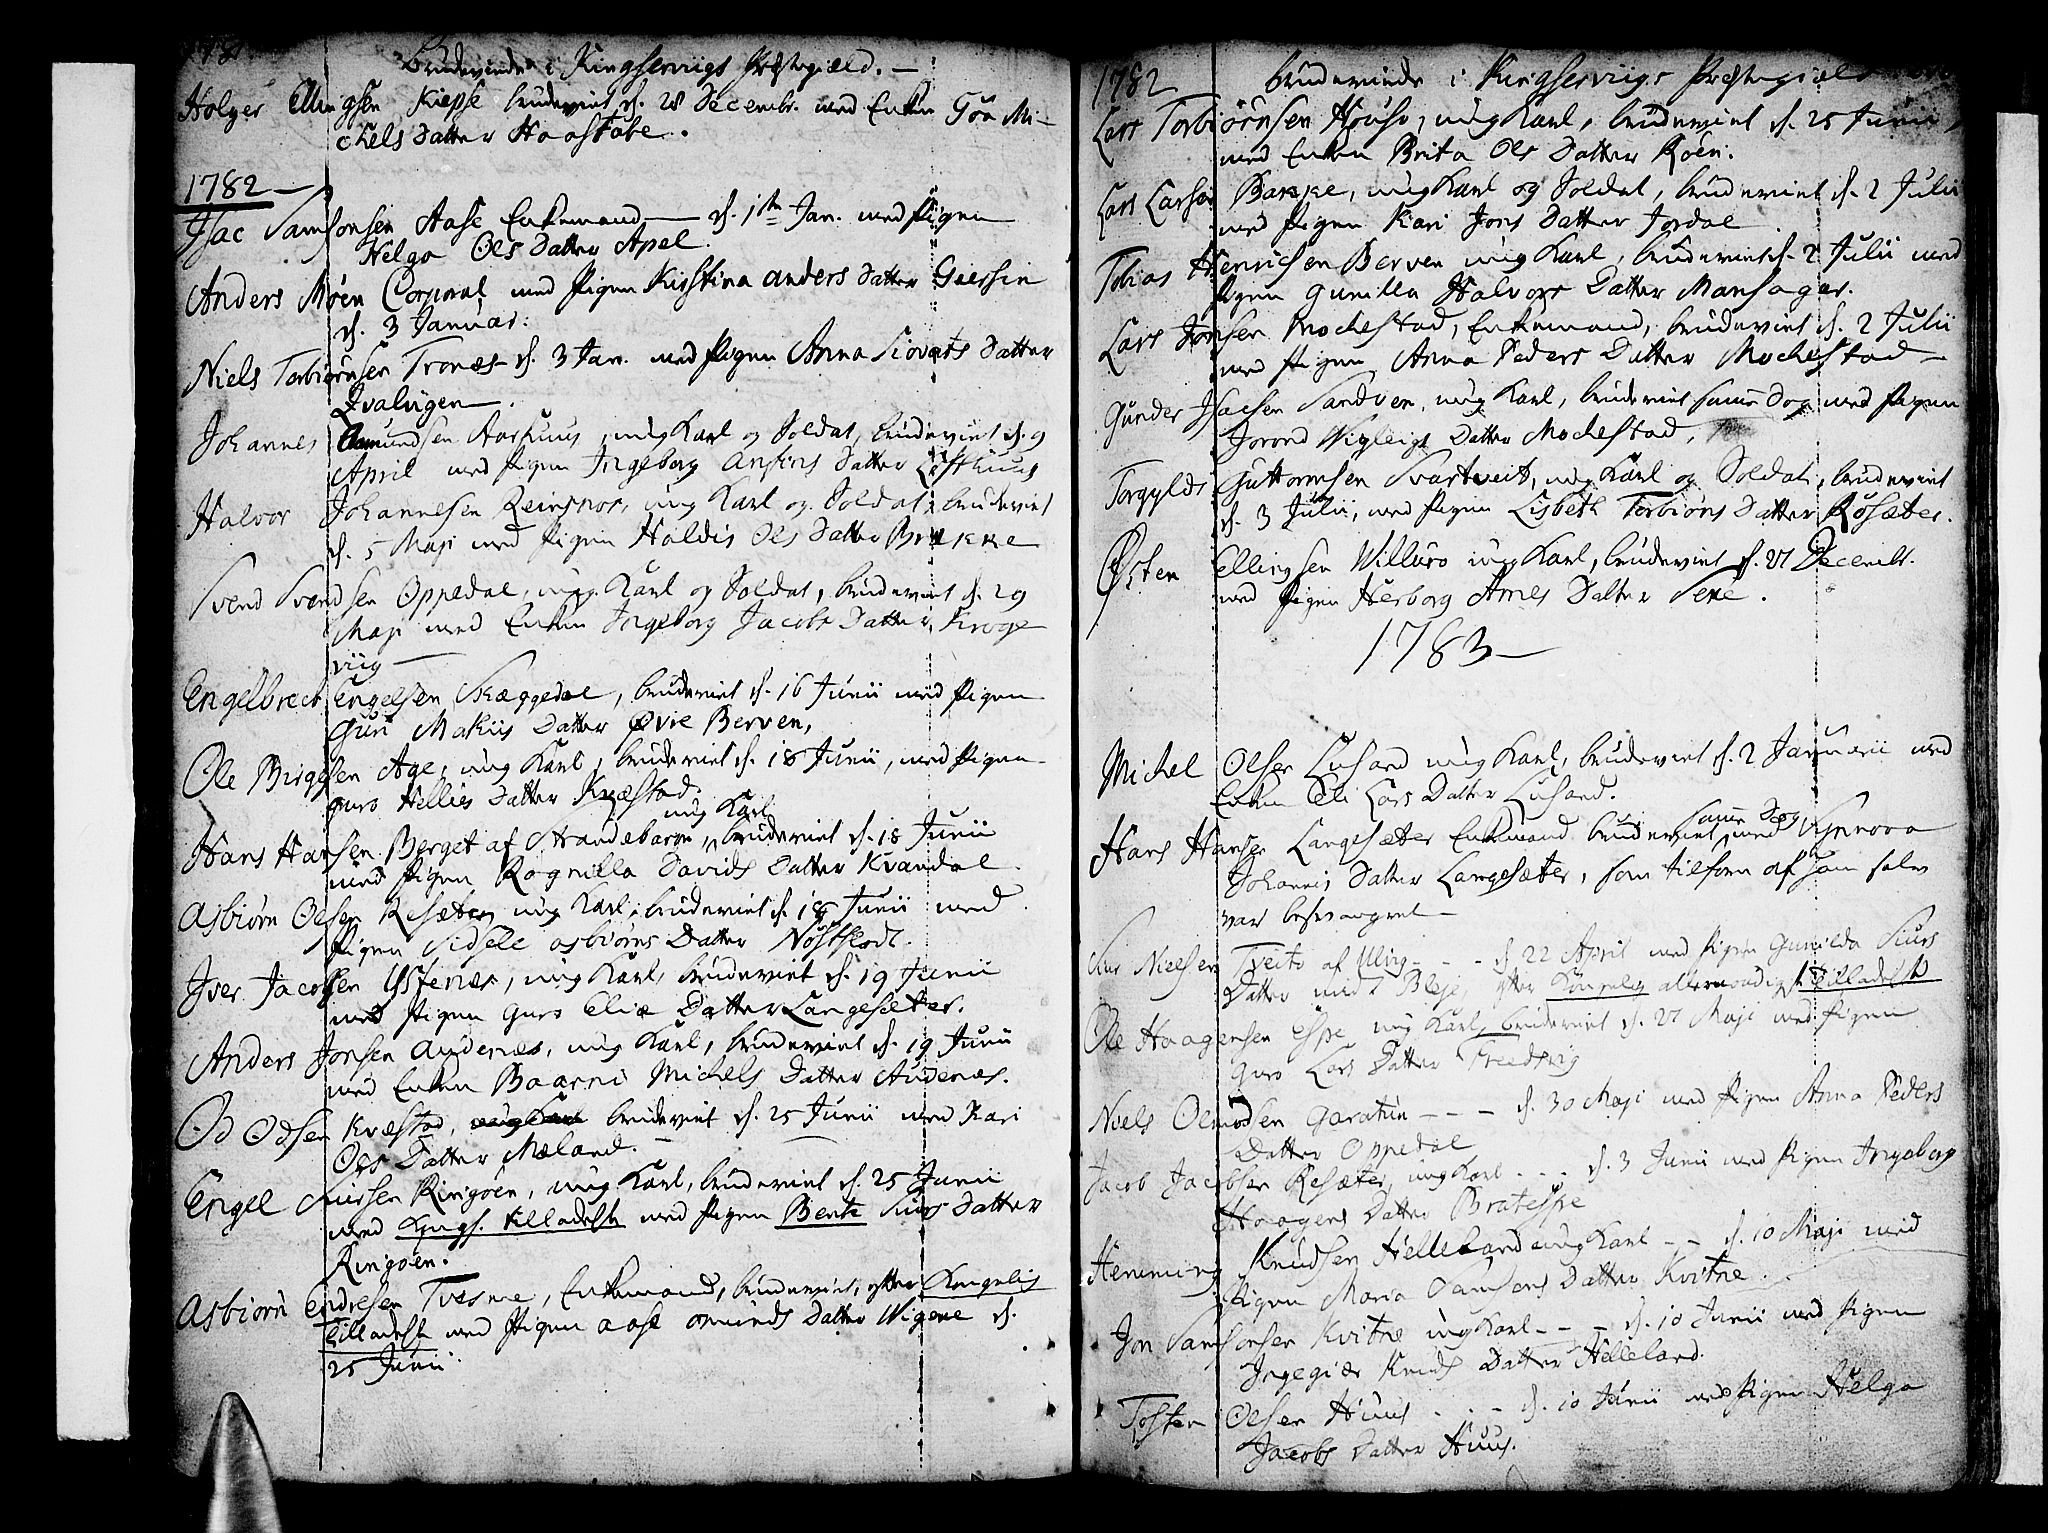 1781
Brudeviede i Kingserviigs Præstegiæld. —
Holger Ellingsen Kiepse brudeviet d. 28 Decembr. med Enken Gøa Mi-
chels Datter Haastabe.
1782 —
Isac Samsonsen Aase Enkemand — d. 1ste Jan. med Pigen
Helga Ols Datter Apel
Anders Moen Corporal, med Pigen Kirstina Anders Datter
d. 3 Januar:
Niels Torbiørnsen Tronæs d. 3 Jan. med Pigen Anna Siovats Datter
Qvalvigen —.
Johannes Aamundsen Aarhuus, ung Karl og Soldat, brudeviet d. 9
April med Pigen Ingeborg Anfins Datter Lofthuus
Halvor Johannesen Reinsnos, ung Karl og Soldat, brudeviet
d. 5 Maji med Pigen Haldis Ols Datter Brekke
Svend Svendsen Oppedal, ung Karl og Soldat, brudeviet d. 29
Maji med Enken Ingeborg Jacobs Datter Kroge
viig —
Engelbrect Engelsen Skæggedal, brudeviet d. 16 Junii med Pigen
Guri Datter Øvre Berven,
Ole Brigtsen Age, ung Karl, brudeviet d. 18 Junii, med Pigen
Guro Hellies Datter Kvæstad.
ung Karl
Hans Hansen Berget af Strandebarm, brudeviet d. 18 Junii
med Pigen Ragnilla Davids Datter Kvandal
Asbiørn Olsen Resæter, ung Karl, brudeviet d. 18 Junii med
Pigen Sidsele Asbiørns Datter Nøstflodt.
Iver Jacobsen Ystenæs, ung Karl, brudeviet d. 19 Junii
med Pigen Guro Eliæ Datter Langesæter.
Anders Jonsen Audenæs, ung Karl, brudeviet d. 19 Junii
med Enken Baarni Michels Datter Audenæs.
Od Odsen Kvæstad, ung Karl brudeviet d. 25 Junii med Kari
Ols Datter Mæland.
Engel Siursen Ringøen, ung Karl, brudeviet d. 25 Junii
med Kongl. tilladelse med Pigen Bente Siurs Datter
Ringøen.
Asbiørn Endresen Tvesme, Enkemand, brudeviet, efter Kongelig
Tilladelse med Pigen Aase Omunds Datter Wigene d.
25 Junii.
1782 Brudeviede i Kingserviigs Præstegiæld
Lars Torbiörnsen House, ung Karl, brudeviet d. 25 Junii,
med Enken Brita Ols Datter Roen.
Lars Larsen Bakke, ung Karl og Soldat, brudeviet d. 2 Julii
med Pigen Kari Jons Datter Jordal
Tobias Henrichsen Berven ung Karl, brudeviet d. 2 Julii med
Pigen Gunilla Halvors Datter Mansager.
Lars Jonsen Mochestad, Enkemand, brudeviet d. 2 Julii
med Pigen Anna Peders Datter Mochestad —
Gunder Isacsen Sandven, ung Karl, brudeviet samme Dag med Pigen
Jorond Wigleigs Datter Mochestad,
Torgyls Guttormsen Svartveit, ung Karl og Soldat, brudeviet
d. 3 Julii, med Pigen Lisbeth Torbiørns Datter Røsæter.
Østen Ellingsen Willuro ung Karl, brudeviet d. 27 Decembr.
med Pigen Herborg Arnes Datter Sexe.
1783 —
Michel Olsen Lusand ung Karl, brudeviet d. 2 Januarii med
Enken Eli Lars Datter Lusand.
samme Dag
Hans Hansen Langesæter Enkemand brudeviet med Synnova
Johannis Datter Langesæter, som tilforn af ham selv
var besvangret —
Siur Nielsen Tveito af Ulvig - - - d. 22 April med Pigen Gunilda Siurs
Datter Bleje, efter Kongelig allernaadigst Tilladelse
Ole Haagensen Espe ung Karl, brudeviet d. 27 Maji med Pigen
Guro Lars Datter Freedsvig
Niels Olmodsen Garatun - - - d. 30 Maji med Pigen Anna Peders
Datter Oppedal
Jacob Jacobsen Resæter, ung Karl - - - d. 3 Junii med Pigen Ingeborg
Haagens Datter Bratespe
Hemming Knudsen Helleland ung Karl - - d. 10 Maji med
Pigen Maria Samsons Datter Kvitne
Jon Samsonsen Kvitne ung Karl - - - d. 10 Junii med Pigen
Ingegiær Knuds Datter Helleland.
Tosten Olsen Huus - - - d. 10 Junii med Pigen Helga
Jacobs Datter Huus.